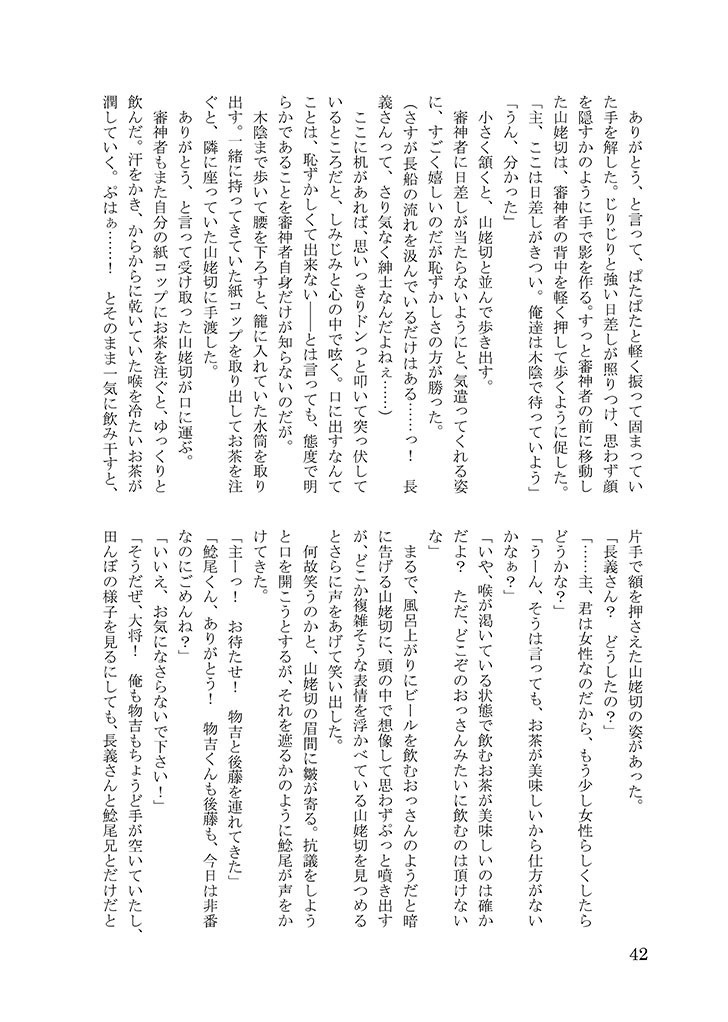 ありがとう、と言って、ぱたぱたと軽く振って固まってい
た手を解した。じりじりと強い日差しが照りつけ、思わず顔
を隠すかのように手で影を作る。すっと審神者の前に移動し
た山姥切は、審神者の背中を軽く押して歩くように促した。
「主、ここは日差しがきつい。俺達は木陰で待っていよう」
「うん、分かった」
　小さく頷くと、山姥切と並んで歩き出す。
　審神者に日差しが当たらないようにと、気遣ってくれる姿
に、すごく嬉しいのだが恥ずかしさの方が勝った。
（さすが長船の流れを汲んでいるだけはある……っ！　長
義さんって、さり気なく紳士なんだよねぇ……）
　ここに机があれば、思いっきりドンっと叩いて突っ伏して
いるところだと、しみじみと心の中で呟く。口に出すなんて
ことは、恥ずかしくて出来ない――とは言っても、態度で明
らかであることを審神者自身だけが知らないのだが。
　木陰まで歩いて腰を下ろすと、籠に入れていた水筒を取り
出す。一緒に持ってきていた紙コップを取り出してお茶を注
ぐと、隣に座っていた山姥切に手渡した。
　ありがとう、と言って受け取った山姥切が口に運ぶ。
　審神者もまた自分の紙コップにお茶を注ぐと、ゆっくりと
飲んだ。汗をかき、からからに乾いていた喉を冷たいお茶が
潤していく。ぷはぁ……！　とそのまま一気に飲み干すと、
片手で額を押さえた山姥切の姿があった。
「長義さん？　どうしたの？」
「……主、君は女性なのだから、もう少し女性らしくしたら
どうかな？」
「うーん、そうは言っても、お茶が美味しいから仕方がない
かなぁ？」
「いや、喉が渇いている状態で飲むお茶が美味しいのは確か
だよ？　ただ、どこぞのおっさんみたいに飲むのは頂けない
な」
　まるで、風呂上がりにビールを飲むおっさんのようだと暗
に告げる山姥切に、頭の中で想像して思わずぷっと噴き出す
が、どこか複雑そうな表情を浮かべている山姥切を見つめる
とさらに声をあげて笑い出した。
　何故笑うのかと、山姥切の眉間に皺が寄る。抗議をしよう
と口を開こうとするが、それを遮るかのように鯰尾が声をか
けてきた。
「主ーっ！　お待たせ！　物吉と後藤を連れてきた」
「鯰尾くん、ありがとう！　物吉くんも後藤も、今日は非番
なのにごめんね？」
「いいえ、お気になさらないで下さい！」
「そうだぜ、大将！　俺も物吉もちょうど手が空いていたし、
田んぼの様子を見るにしても、長義さんと鯰尾兄とだけだと
42